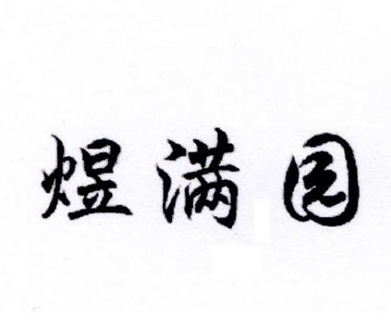 煜满园